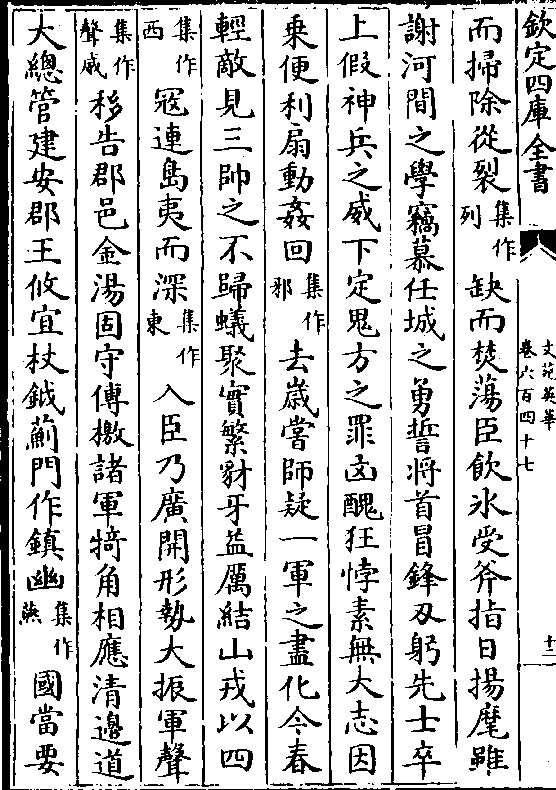 欽定四庫全書
文苑英華
卷六百四十七
十二
而掃除從裂集作列缺而焚蕩臣飲氷受斧指日揚麾雖
謝河間之學竊慕任城之勇誓将首冒鋒刄躬先士卒
上假神兵之威下定鬼方之罪凶醜狂悖素無大志因
乗便利扇動姦回集作邪去歲嘗師疑一軍之盡化今春
輕敵見三帥之不歸蟻聚實繁豺牙益厲結山戎以四
集作西冦連島夷而深集作東入臣乃廣開形勢大振軍聲
集作聲威移告郡邑金湯固守傳檄諸軍犄角相應清邊道
大總管建安郡王攸宜杖鉞薊門作鎮幽集作燕國當要